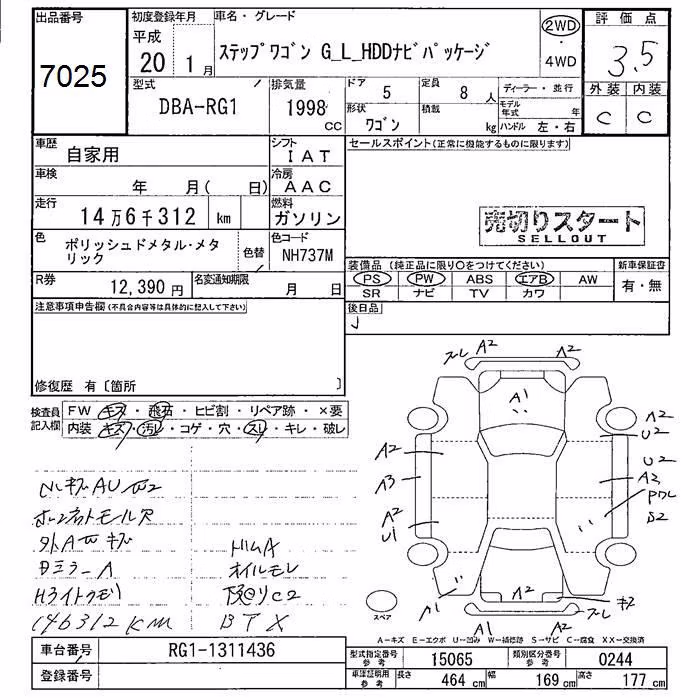 出品番号
7025
初度登録年月
平成
20 1月
車名・グレード
ステップワゴン G_L_HDDナビパッケージ
2WD
・
4WD
評価点
3.5
外装 内装
C C
型式
DBA-RG1
排気量
1998
CC
ドア
5
定員
8 人
形状
ワゴン
積載
kg
ディーラー・並行
モデル年式 年
ハンドル 左・右
車歴
自家用
シフト
IAT
車検
年 月( 日)
冷房
AAC
走行
14万6千312 km
燃料
ガソリン
色
ポリッシュドメタル・メタリック
色替
色コード
NH737M
R券
12,390円
名変通知期限
月 日
セールスポイント(正常に機能するものに限ります)
売切りスタート
SELLOUT
装備品 (純正品に限り〇をつけてください)
PS PW ABS エアB AW
SR ナビ TV カワ
新車保証書
有・無
後日品
注意事項申告欄(不具合内容等は具体的に記入して下さい)
修復歴 有〔箇所 〕
検査員記入欄
FW キズ・飛石・ヒビ割・リペア跡・×要
内装 キズ・汚レ・コゲ・穴・スレ・キレ・破レ
オイルモレ
146312KM
BTX
スレ A2 A2
A1
A2
U2
A2
U2
A3
A2
A2
U1
S2
A1
A2
キズ
A1
スレ
スペア
A-キズ E-エクボ U-凹み W-補修跡 S-サビ C-腐食 XX-交換済
車台番号
RG1-1311436
登録番号
型式指定番号
参考
15065
類別区分番号
参考
0244
車庫証明用
参考
長さ
464 cm
幅
169 cm
高さ
177 cm